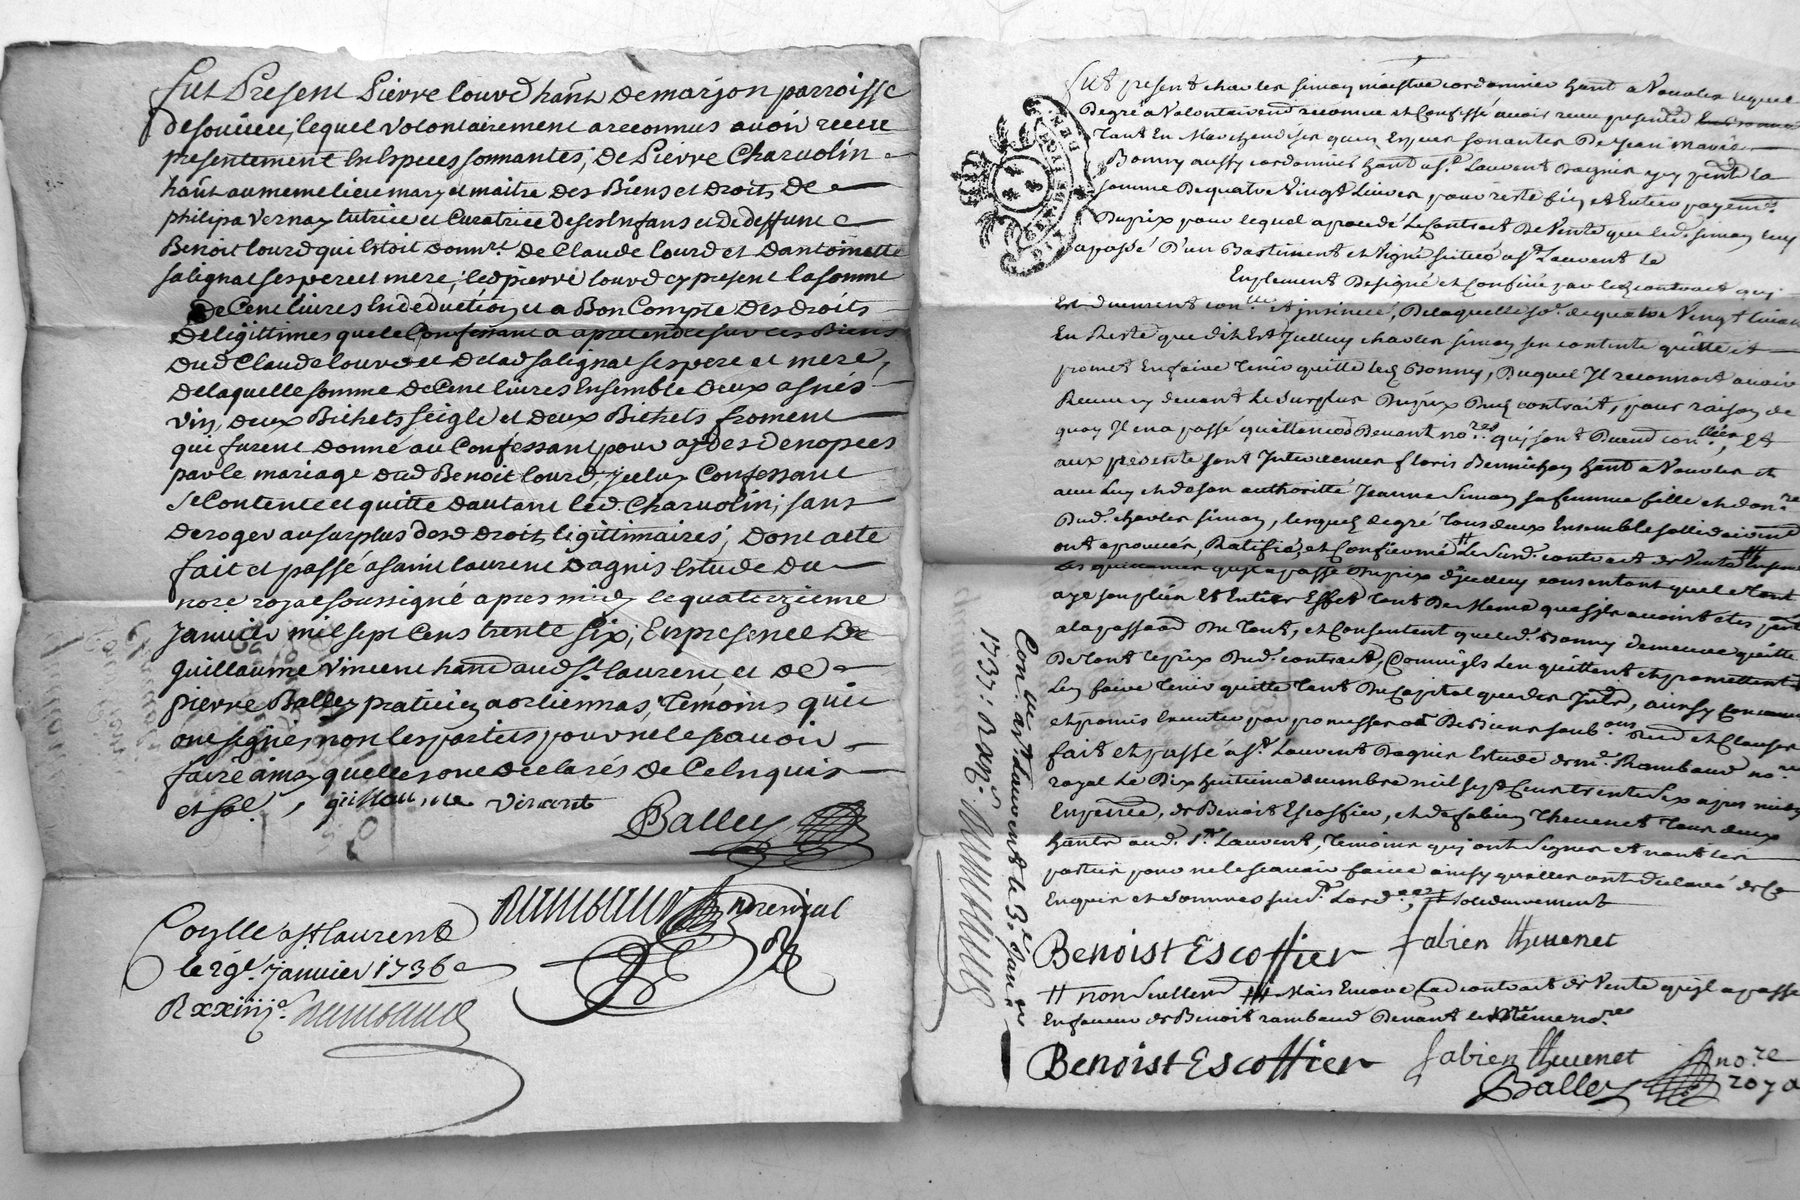 fut Présent Pierre Lourd hant de marjon parroisse
de soucieu, lequel volontairement a reconnus avoir receu
presentement En Especes sonnantes, de Pierre Charvolin
hant au meme lieu mary et maitre des Biens et droits de
philipa vernay tutrice et Curatrice de ses Enfans et de deffunt
Benoit Lourd qui Estoit donnre. de Claude Lourd et d'antoinette
salignat ses pere et mere, led pierre Lourd cy present la somme
de Cent livres En deduction et a Bon Compte des droits
de legittimes que le Confessant a a pretendre sur les Biens
dud Claude Lourd et de lad salignat ses pere et mere,
de laquelle somme de Cent livres Ensemble deux asnés
vin, deux Bichets seigle et deux Bichets froment
qui furent donné au Confessant pour aydes de nopces
par le mariage dud Benoit Lourd, yceluy Confessant
se Contente et quitte dautant led. Charvolin, sans
deroger au surplus desd droits legittimaires, dont acte
fait et passé a saint laurent dagnis Estude du
nore royal soussigné apres midy le quatorzieme
Janvier mil sept cens trente six, En presence de
guillaume vincent hant aud st. laurent, et de
pierre Balley praticien a orliennas, témoins quy
ont signés, non les parties pour ne le scavoir
faire ainsy quelles ont declarés de ce Enquis
et sol. guillaume vincent
Balley
Corylle a st laurent
le 29e. janvier 1736
R xxiiij s. Rambaud
fut present charles simon maistre cordonnier hant a Vaucles lequel
de gré a Volontairemt reconnu et Confessé avoir receu presentemt
tant En Marchandises quen Espèces sonantes de Jean Marie
Bonny aussy cordonnier hant a st. Laurent dagnis yy pent la
somme de quatre Vingt Livres pour reste fin et Entier payemt.
du prix pour lequel a procedé Le Contract de Vente que led. simon luy
a passé d'un Bastiment et Vigne situés a st. Laurent le
Emplement designé et Confiné par led contract quj
Est duement conlle. et insinué, de laquelle so. de quatre Vingt livres
En Reste que dit Est Jceluy charles simon sen contente quitte et
promet En faire tenir quitte led Bonny, duquel Jl reconnoit avoir
Receu cy devant Le surplus du prix dud contrait, pour raison de
quoy Jl en a passé quittances devant nores quj sont duemt conllées, Et
aux presente sont Intervenus floris Bernichon hant a Vaucles et
avec Luy et de son authoritté Jeanne Simon sa femme fille et donre
dud. charles simon, lesquels de gré tous deux Ensemble sollidairemt
ont aprouvés, Ratifiés et Confirmé Le susd. contract de Vente
Les quittances quil a passé du prix dJceluy consentant quel et tout
aye son plein Et Entier Effet tout de Meme que sils avoint etés pnt
a la passaon du tout, et Consentent que led. Bonny demeure quitte
de tout le prix dud. contract, Comm ils Len quittent et promettent
Len faire tenir quitte tant du Capital que des Jntts, ainsy convenu
et promis Executer par promesses obl de Biens soub.ons Rend et Clauses
fait et passé a st. Laurent dagnis Estude de me. Rambaud nore
royal Le dix huitieme decembre mil sept Cens trente six apres midy
En presce. de Benoit Escoffier, et de fabien Thevenet tous deux
hants aud. st. Laurent, temoins quj ont signés et nont les
parties pour ne le scavoir faire ainsy quelles ont declaré de Ce
Enquis et sommés suivt. Lordce, # solidairement
Benoist Escoffier fabien thevenet
# non seullemt # Mais Encore Lad contract de Vente quil a passé
En faveur de Benoit rambaud devant le Même nore
Benoist Escoffier fabien thevenet
Balley nore roya
Conlle a st. Laurent le 3e. Janvr
1737: Rambaud